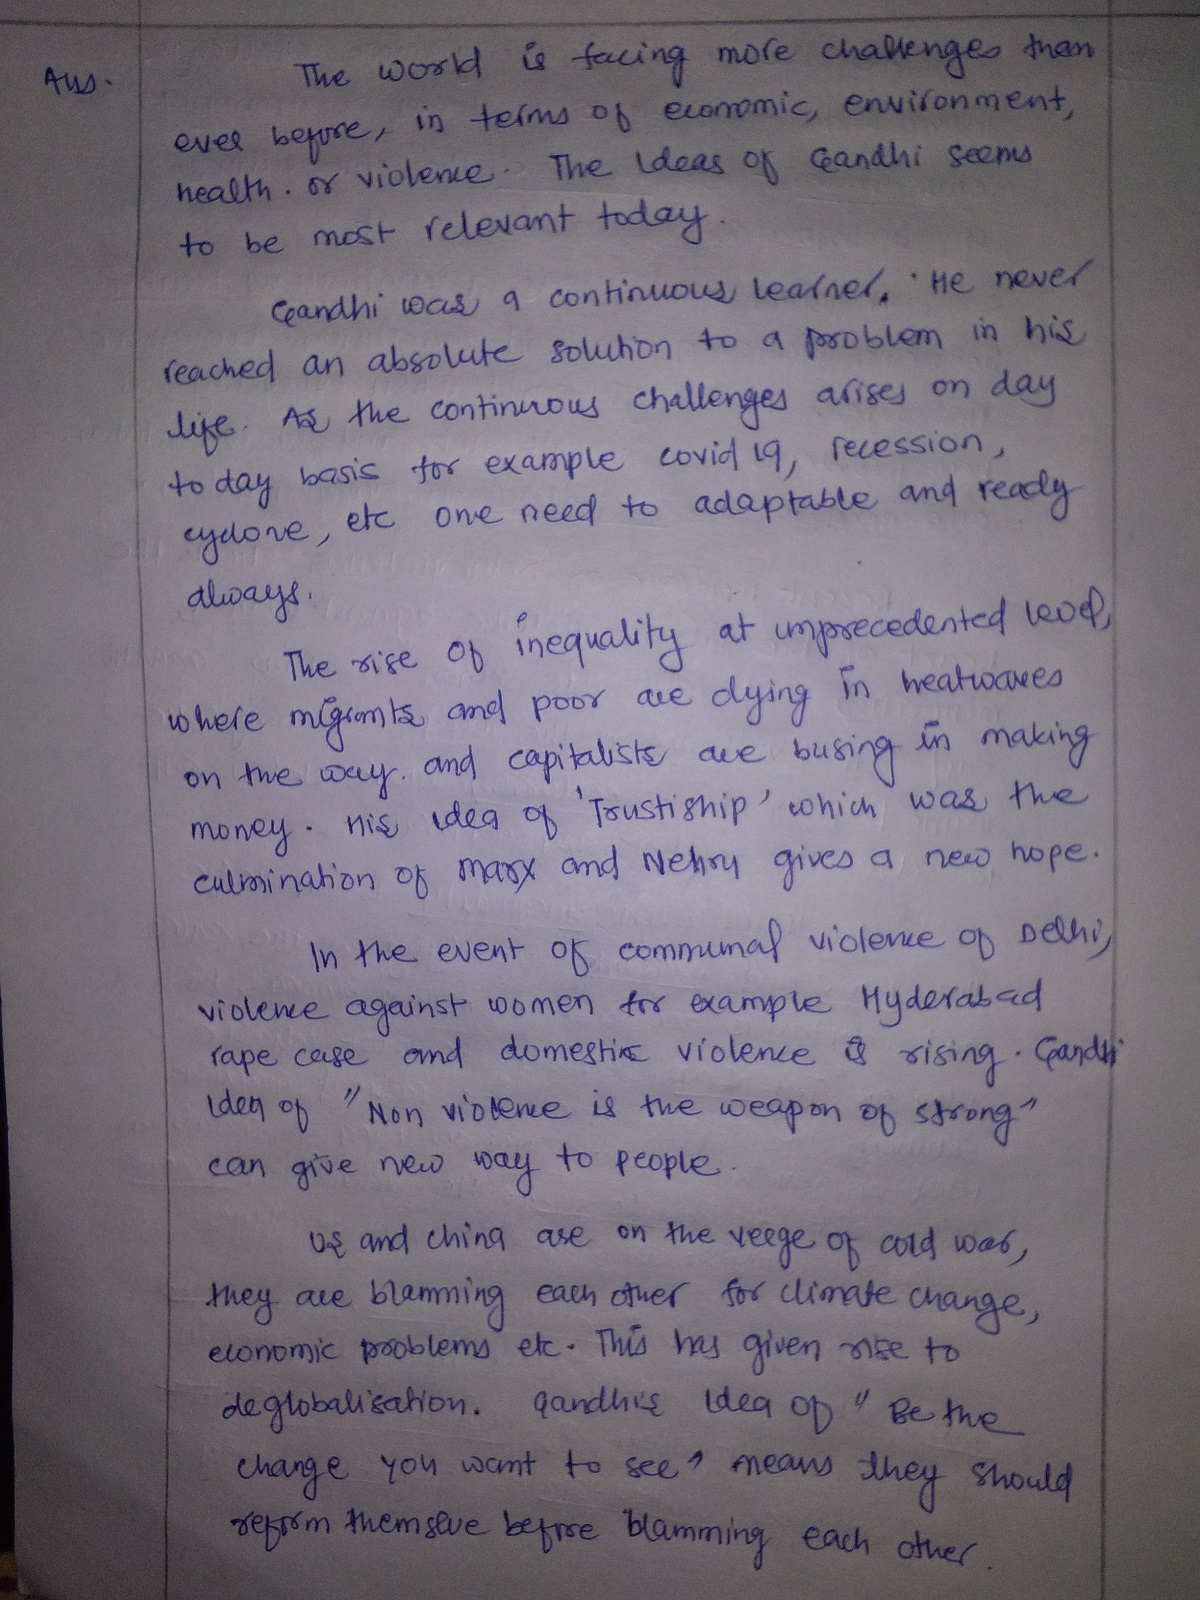 Ans. The world is facing more challenges than
ever before, in terms of economic, environment,
health. or violence. The Ideas of Gandhi seems
to be most relevant today.
Gandhi was a continuous learner. He never
reached an absolute solution to a problem in his
life. As the continuous challenges arises on day
to day basis for example covid 19, recession,
cyclone, etc one need to adaptable and ready
always.
The rise of inequality at unprecedented level,
where migrants and poor are dying in heatwaves
on the way. and capitalists are busing in making
money. His idea of 'Trustiship' which was the
culmination of Marx and Nehru gives a new hope.
In the event of communal violence of Delhi,
violence against women for example Hyderabad
rape case and domestic violence is rising. Gandhi
idea of "Non violence is the weapon of strong"
can give new way to people.
US and China are on the verge of cold war,
they are blamming each other for climate change,
economic problems etc. This has given rise to
deglobalisation. Gandhi's Idea of "Be the
change you want to see" means they should
reform themselve before blamming each other.